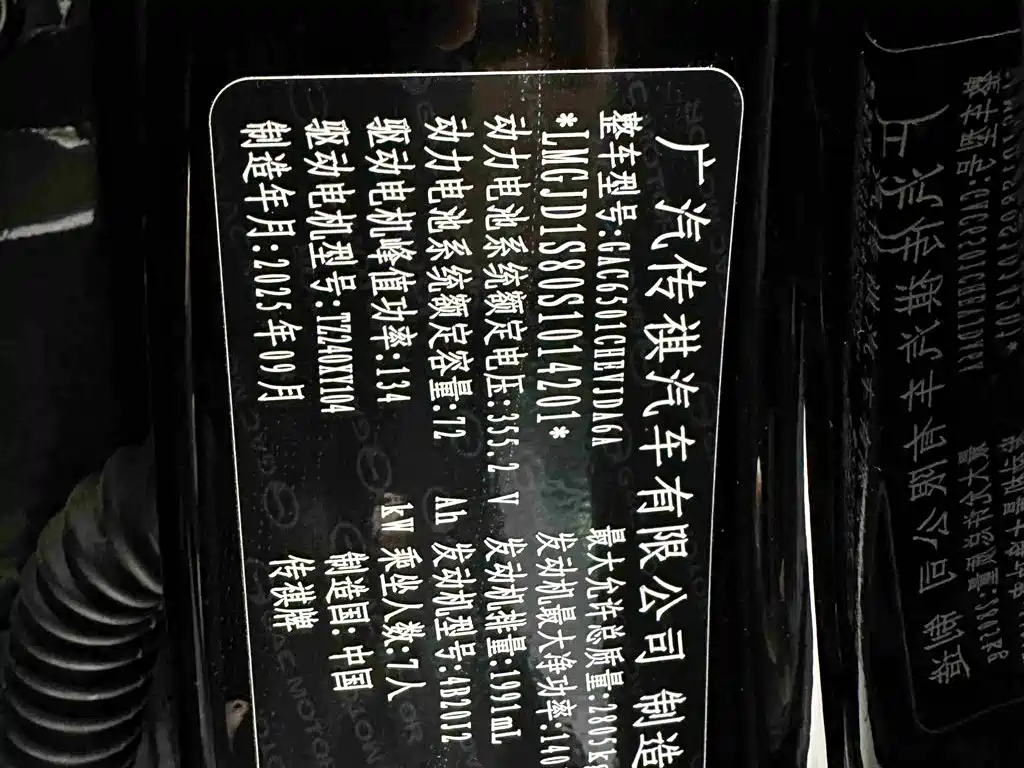 广汽传祺汽车有限公司 制造
整车型号:GAC6501CHEVIDA6A 最大允许总质量:2805kg
*LMGJD1S80S1014201* 发动机最大净功率:140
动力电池系统额定电压:355.2 V 发动机排量:1991mL
动力电池系统额定容量:72 Ah 发动机型号:4B20J2
驱动电机峰值功率:134 kW 乘坐人数:7人
驱动电机型号:TZ240XY104 制造国:中国
制造年月:2025年09月 传祺牌